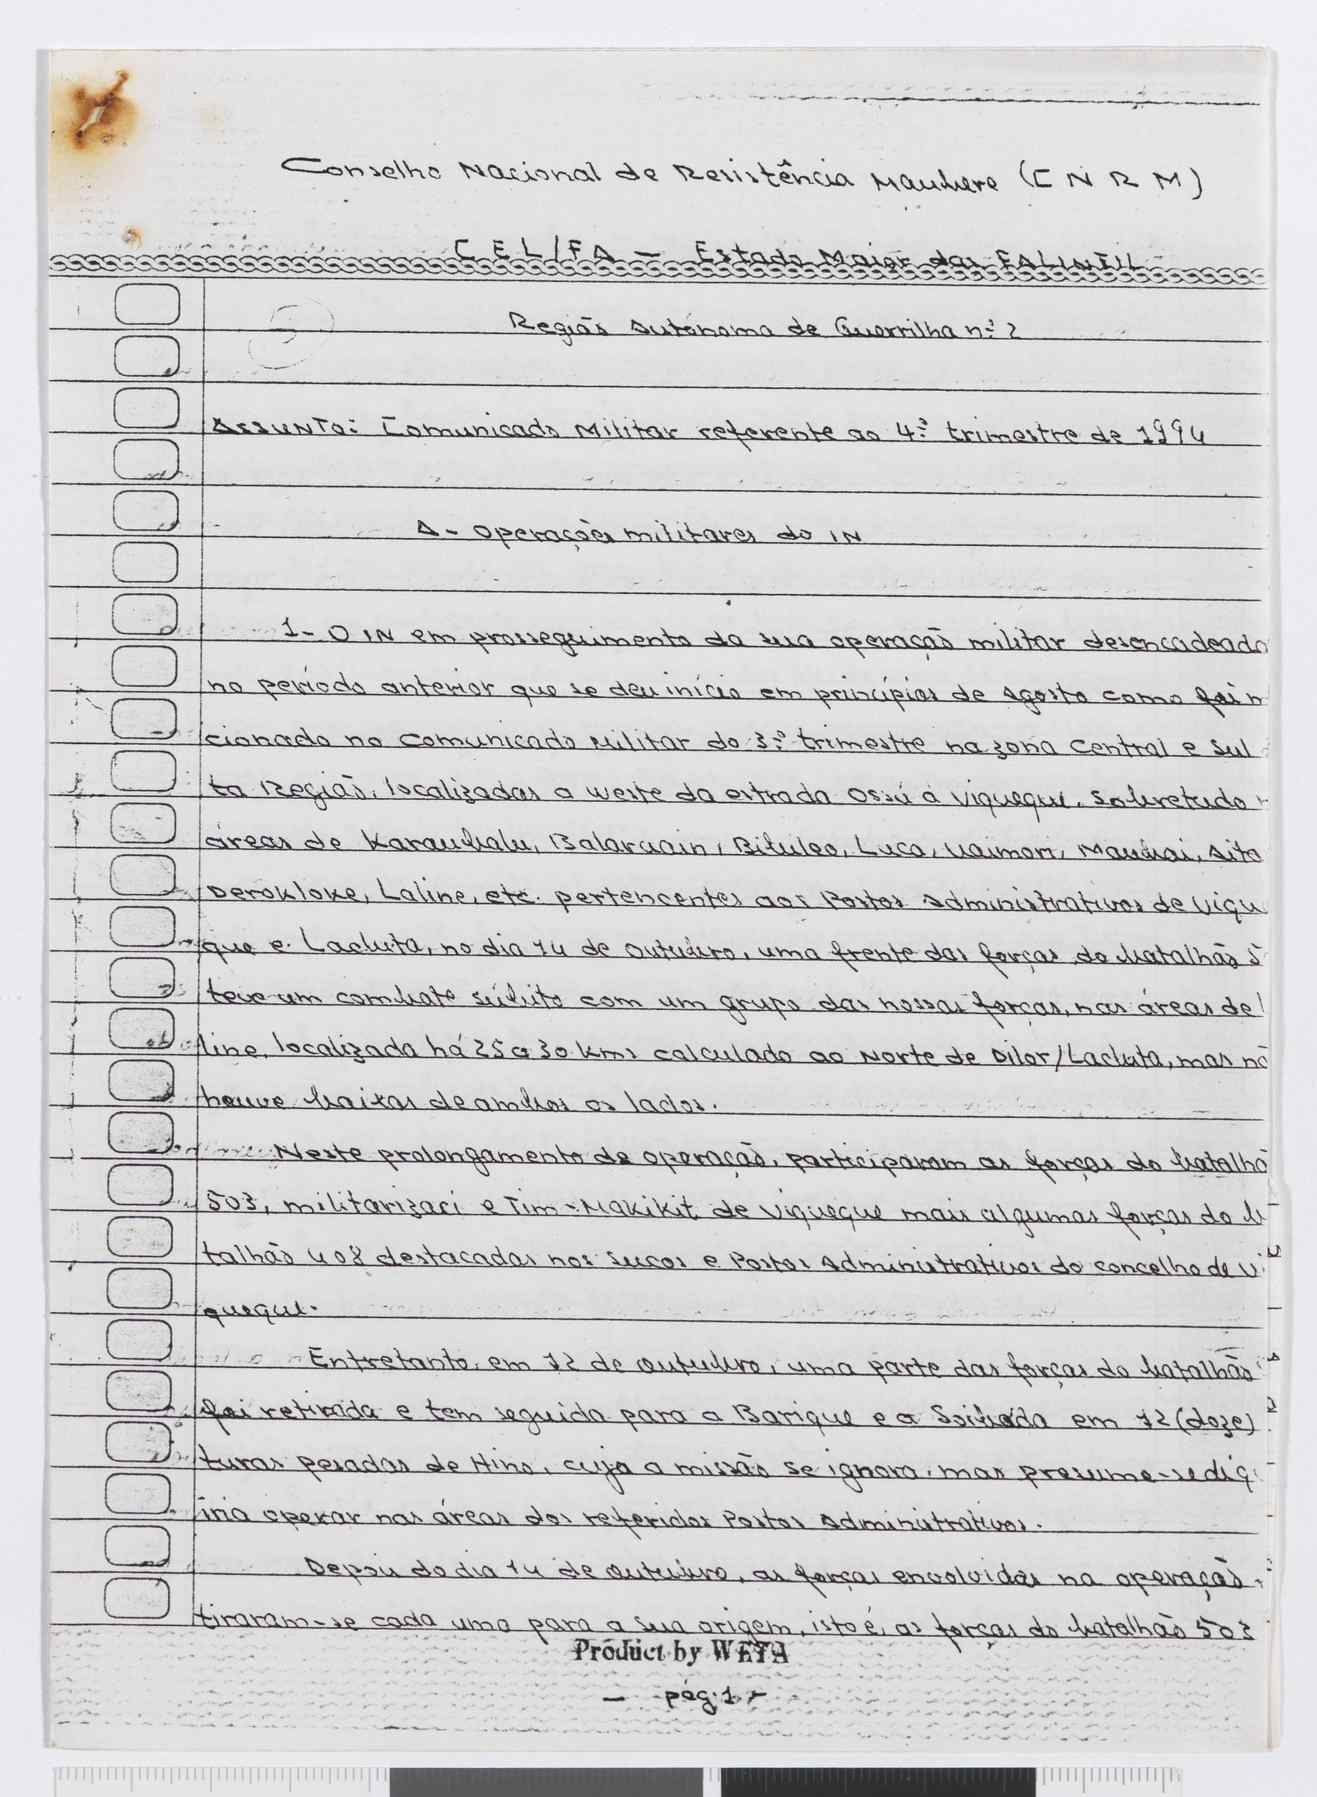 Conselho Nacional de Resistência Maubere (C N R M)
C E L/F A — Estado Maior das FALINTIL
Região Autónoma de Guerrilha n.º 2
ASSUNTO: Comunicado Militar referente ao 4.º trimestre de 1994
A - Operações militares do IN
1- O IN em prosseguimento da sua operação militar desencadeado
no período anterior que se deu início em princípios de Agosto como foi
cionado no Comunicado Militar do 3.º trimestre na zona Central e Sul
ta Região, localizadas a weste da estrada Ossú á Viqueque, sobretudo
áreas de Karaubalu, Balaruain, Bibileo, Luca, Uaimori,
Derokloke, Laline, etc. pertencentes aos Postos Administrativos de Viqu
que e Lacluta, no dia 14 de Outubro, uma frente das forças do batalhão 5
teve um combate súbito com um grupo das nossas forças, nas áreas de
line, localizada há 25 a 30 kms calculado ao Norte de Dilor/Lacluta, mas nã
houve baixas de ambos os lados.
Neste prolongamento de operação, participaram as forças do batalhã
503, militarizaci e Tim-Makikit de Viqueque mais algumas forças do b
talhão 408 destacadas nos sucos e Postos Administrativos do concelho de Vi
queque.
Entretanto, em 12 de Outubro, uma parte das forças do batalhão
foi retirada e tem seguida para a Barique e a Soibada em 12 (doze)
turas pesadas de Hino, cuja a missão se ignora, mas presume-se dig
iria operar nas áreas dos referidos Postos Administrativos.
Depois do dia 14 de Outubro, as forças envolvidas na operação
tiraram-se cada uma para a sua origem, isto é, as forças do batalhão 503
Product by WETA
— pág. 1 -